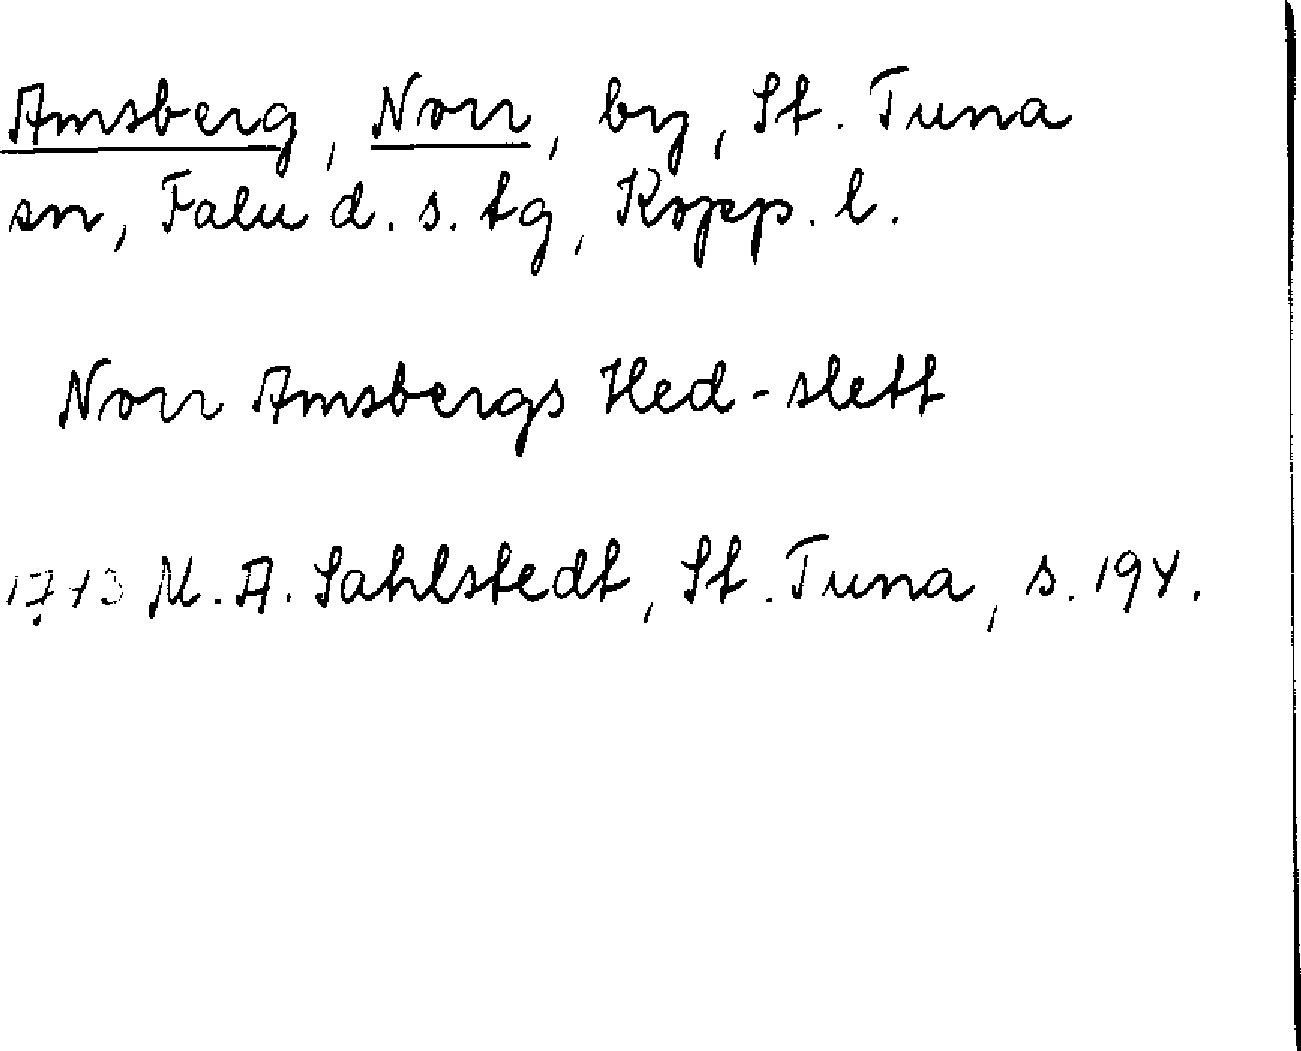 Amsberg, Norr, by, St. Tuna
sn, Falu d. s. tg, Kopp. l.
Norr Amsbergs Hed-slett
1743 M. A. Sahlstedt, St. Tuna, s. 194.